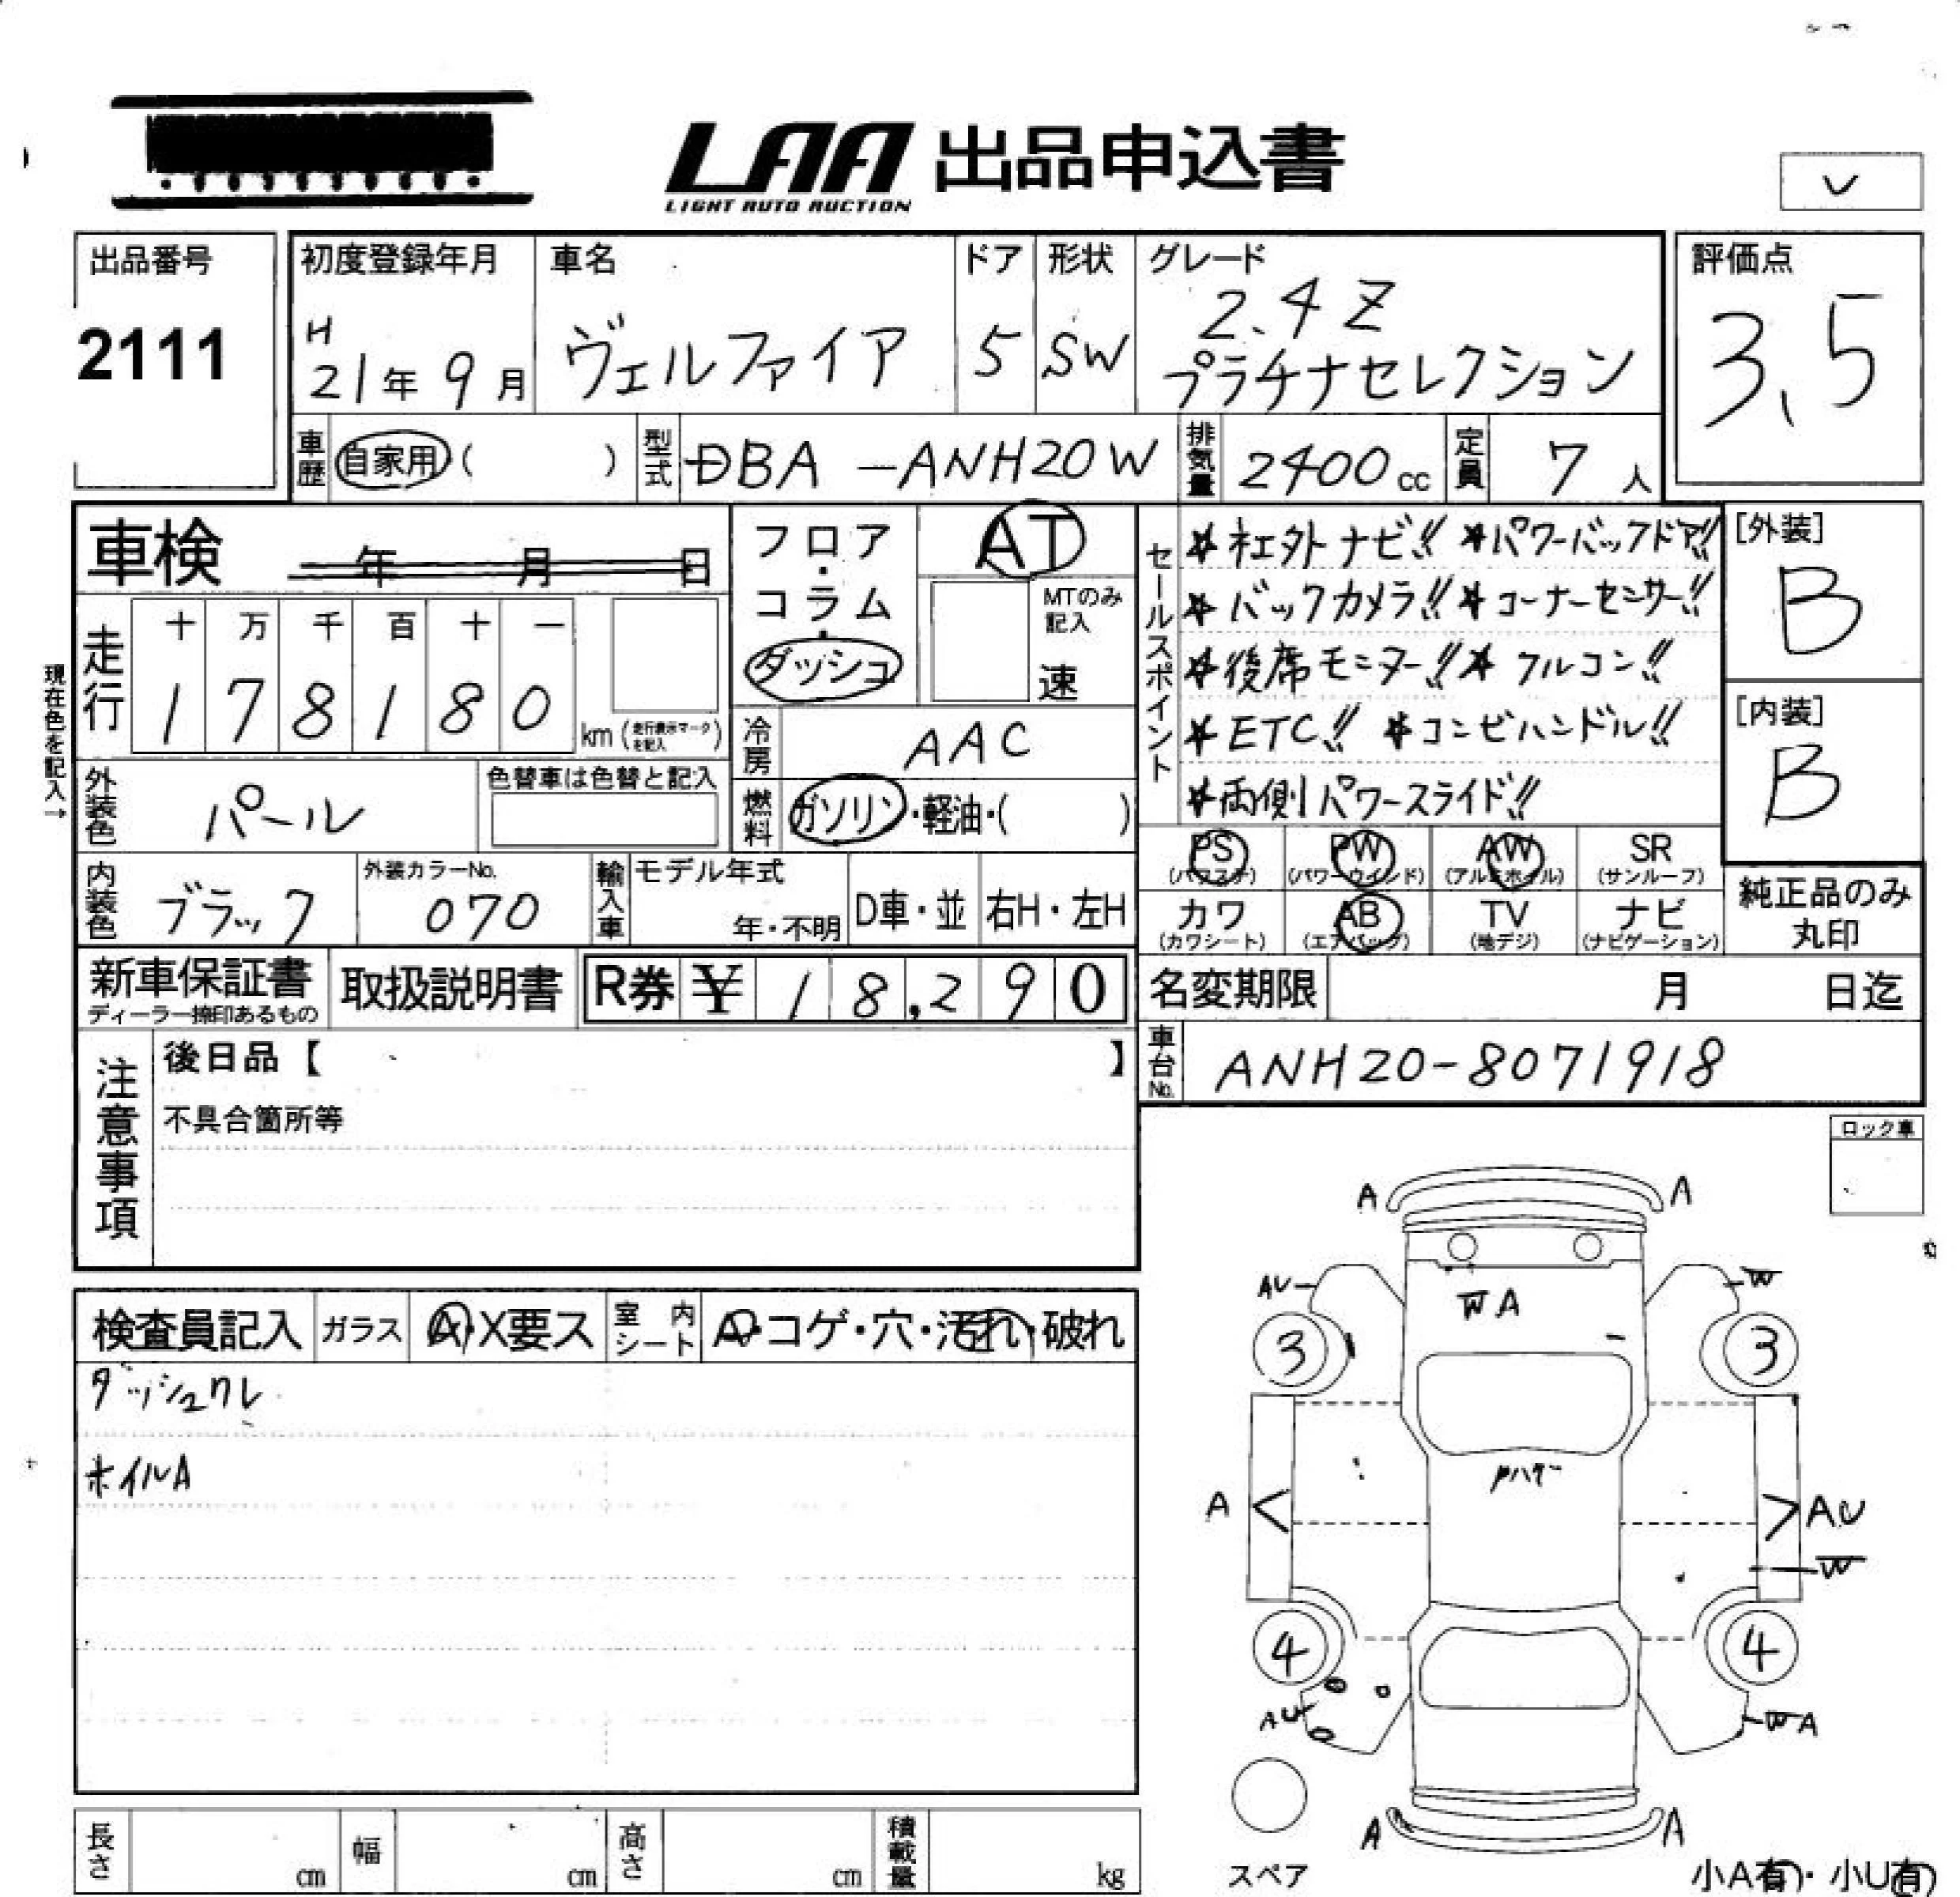 LAA 出品申込書
LIGHT AUTO AUCTION
出品番号
2111
初度登録年月
H
21年 9月
車名
ヴェルファイア
ドア
5
形状
SW
グレード
2.4Z
プラチナセレクション
評価点
3.5
車歴 自家用( )
型式 DBA-ANH20W
排気量 2400cc
定員 7人
車検 年 月 日
フロア・コラム・ダッシュ
AT
MTのみ記入
速
走行
十 万 千 百 十 一
1 7 8 1 8 0 km (走行表示マークを記入)
現在色を記入→
冷房 AAC
外装色 パール
色替車は色替と記入
燃料 ガソリン・軽油・( )
内装色 ブラック
外装カラーNo.
070
輸入車
モデル年式
年・不明
D車・並
右H・左H
セールスポイント
社外ナビ!! パワーバックドア!!
バックカメラ!! コーナーセンサー!!
後席モニター!! クルコン!!
ETC!! コンビハンドル!!
両側パワースライド!!
[外装]
B
[内装]
B
PS (パワステ)
PW (パワーウインド)
AW (アルミホイル)
SR (サンルーフ)
カワ (カワシート)
AB (エアバッグ)
TV (地デジ)
ナビ (ナビゲーション)
純正品のみ
丸印
新車保証書
ディーラー捺印あるもの
取扱説明書
R券 ¥ 18,290
名変期限 月 日迄
車台No. ANH20-8071918
注意事項
後日品【 】
不具合箇所等
ロック車
検査員記入
ガラス A・X要ス
室内シート A・コゲ・穴・汚れ・破れ
ダッシュワレ
ホイルA
A A
AU W
W A
3 3
A AU
W
4 4
AU W A
A A
スペア
小A有・小U有
長さ cm
幅 cm
高さ cm
積載量 kg